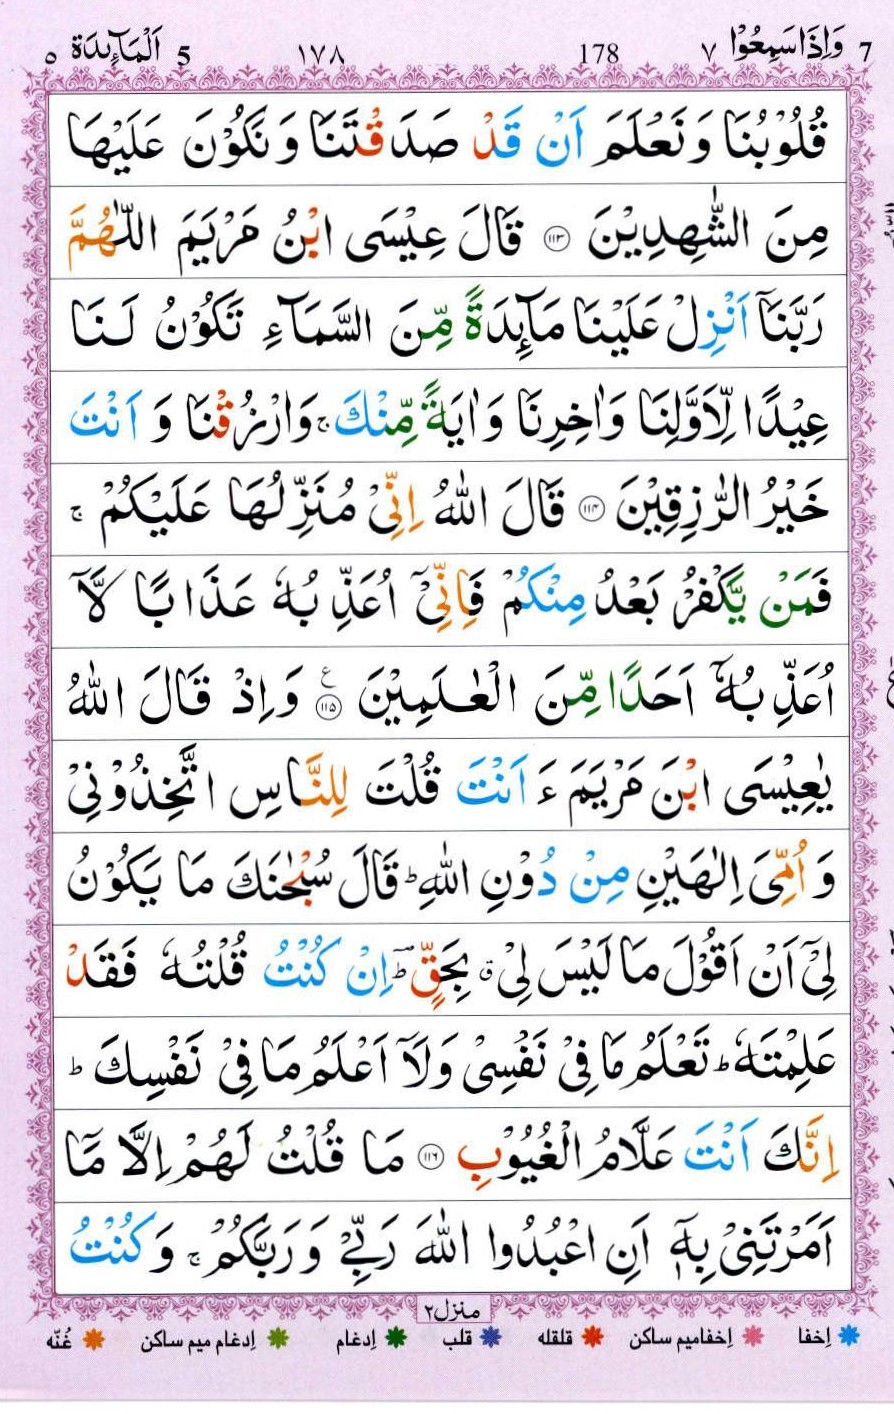 7 وَاِذَا سَمِعُوْا ٧ 178 ١٧٨ 5 اَلْمَآئِدَة ٥
قُلُوْبُنَا وَ نَعْلَمَ اَنْ قَدْ صَدَقْتَنَا وَ نَكُوْنَ عَلَيْهَا
مِنَ الشّٰهِدِيْنَ ۝۱۱۳ قَالَ عِيْسَى ابْنُ مَرْيَمَ اللّٰهُمَّ
رَبَّنَاۤ اَنْزِلْ عَلَيْنَا مَآئِدَةً مِّنَ السَّمَآءِ تَكُوْنُ لَنَا
عِيْدًا لِّاَوَّلِنَا وَاٰخِرِنَا وَاٰيَةً مِّنْكَ ۚ وَارْزُقْنَا وَ اَنْتَ
خَيْرُ الرّٰزِقِيْنَ ۝۱۱۴ قَالَ اللّٰهُ اِنِّىْ مُنَزِّلُهَا عَلَيْكُمْ ۚ
فَمَنْ يَّكْفُرْ بَعْدُ مِنْكُمْ فَاِنِّىْۤ اُعَذِّبُهٗ عَذَابًا لَّاۤ
اُعَذِّبُهٗۤ اَحَدًا مِّنَ الْعٰلَمِيْنَ ۝۱۱۵ ع وَاِذْ قَالَ اللّٰهُ
يٰعِيْسَى ابْنَ مَرْيَمَ ءَ اَنْتَ قُلْتَ لِلنَّاسِ اتَّخِذُوْنِىْ
وَ اُمِّىَ اِلٰهَيْنِ مِنْ دُوْنِ اللّٰهِ ؕ قَالَ سُبْحٰنَكَ مَا يَكُوْنُ
لِىْۤ اَنْ اَقُوْلَ مَا لَيْسَ لِىْ ۗ بِحَقٍّ ؕ اِنْ كُنْتُ قُلْتُهٗ فَقَدْ
عَلِمْتَهٗ ؕ تَعْلَمُ مَا فِىْ نَفْسِىْ وَلَاۤ اَعْلَمُ مَا فِىْ نَفْسِكَ ؕ
اِنَّكَ اَنْتَ عَلَّامُ الْغُيُوْبِ ۝۱۱۶ مَا قُلْتُ لَهُمْ اِلَّا مَاۤ
اَمَرْتَنِىْ بِهٖۤ اَنِ اعْبُدُوا اللّٰهَ رَبِّىْ وَ رَبَّكُمْ ۚ وَ كُنْتُ
منزل۲
اِخفا اِخفامیم ساکن قلقله قلب اِدغام اِدغام میم ساکن غُنّه